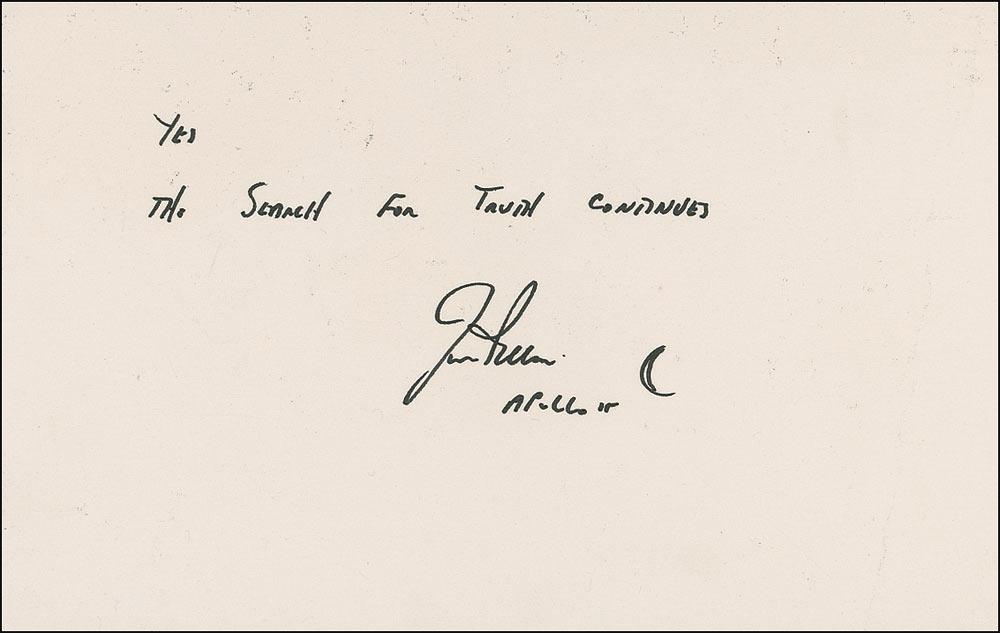 Yes
The Search For Truth Continues
Jim Irwin
Apollo 15